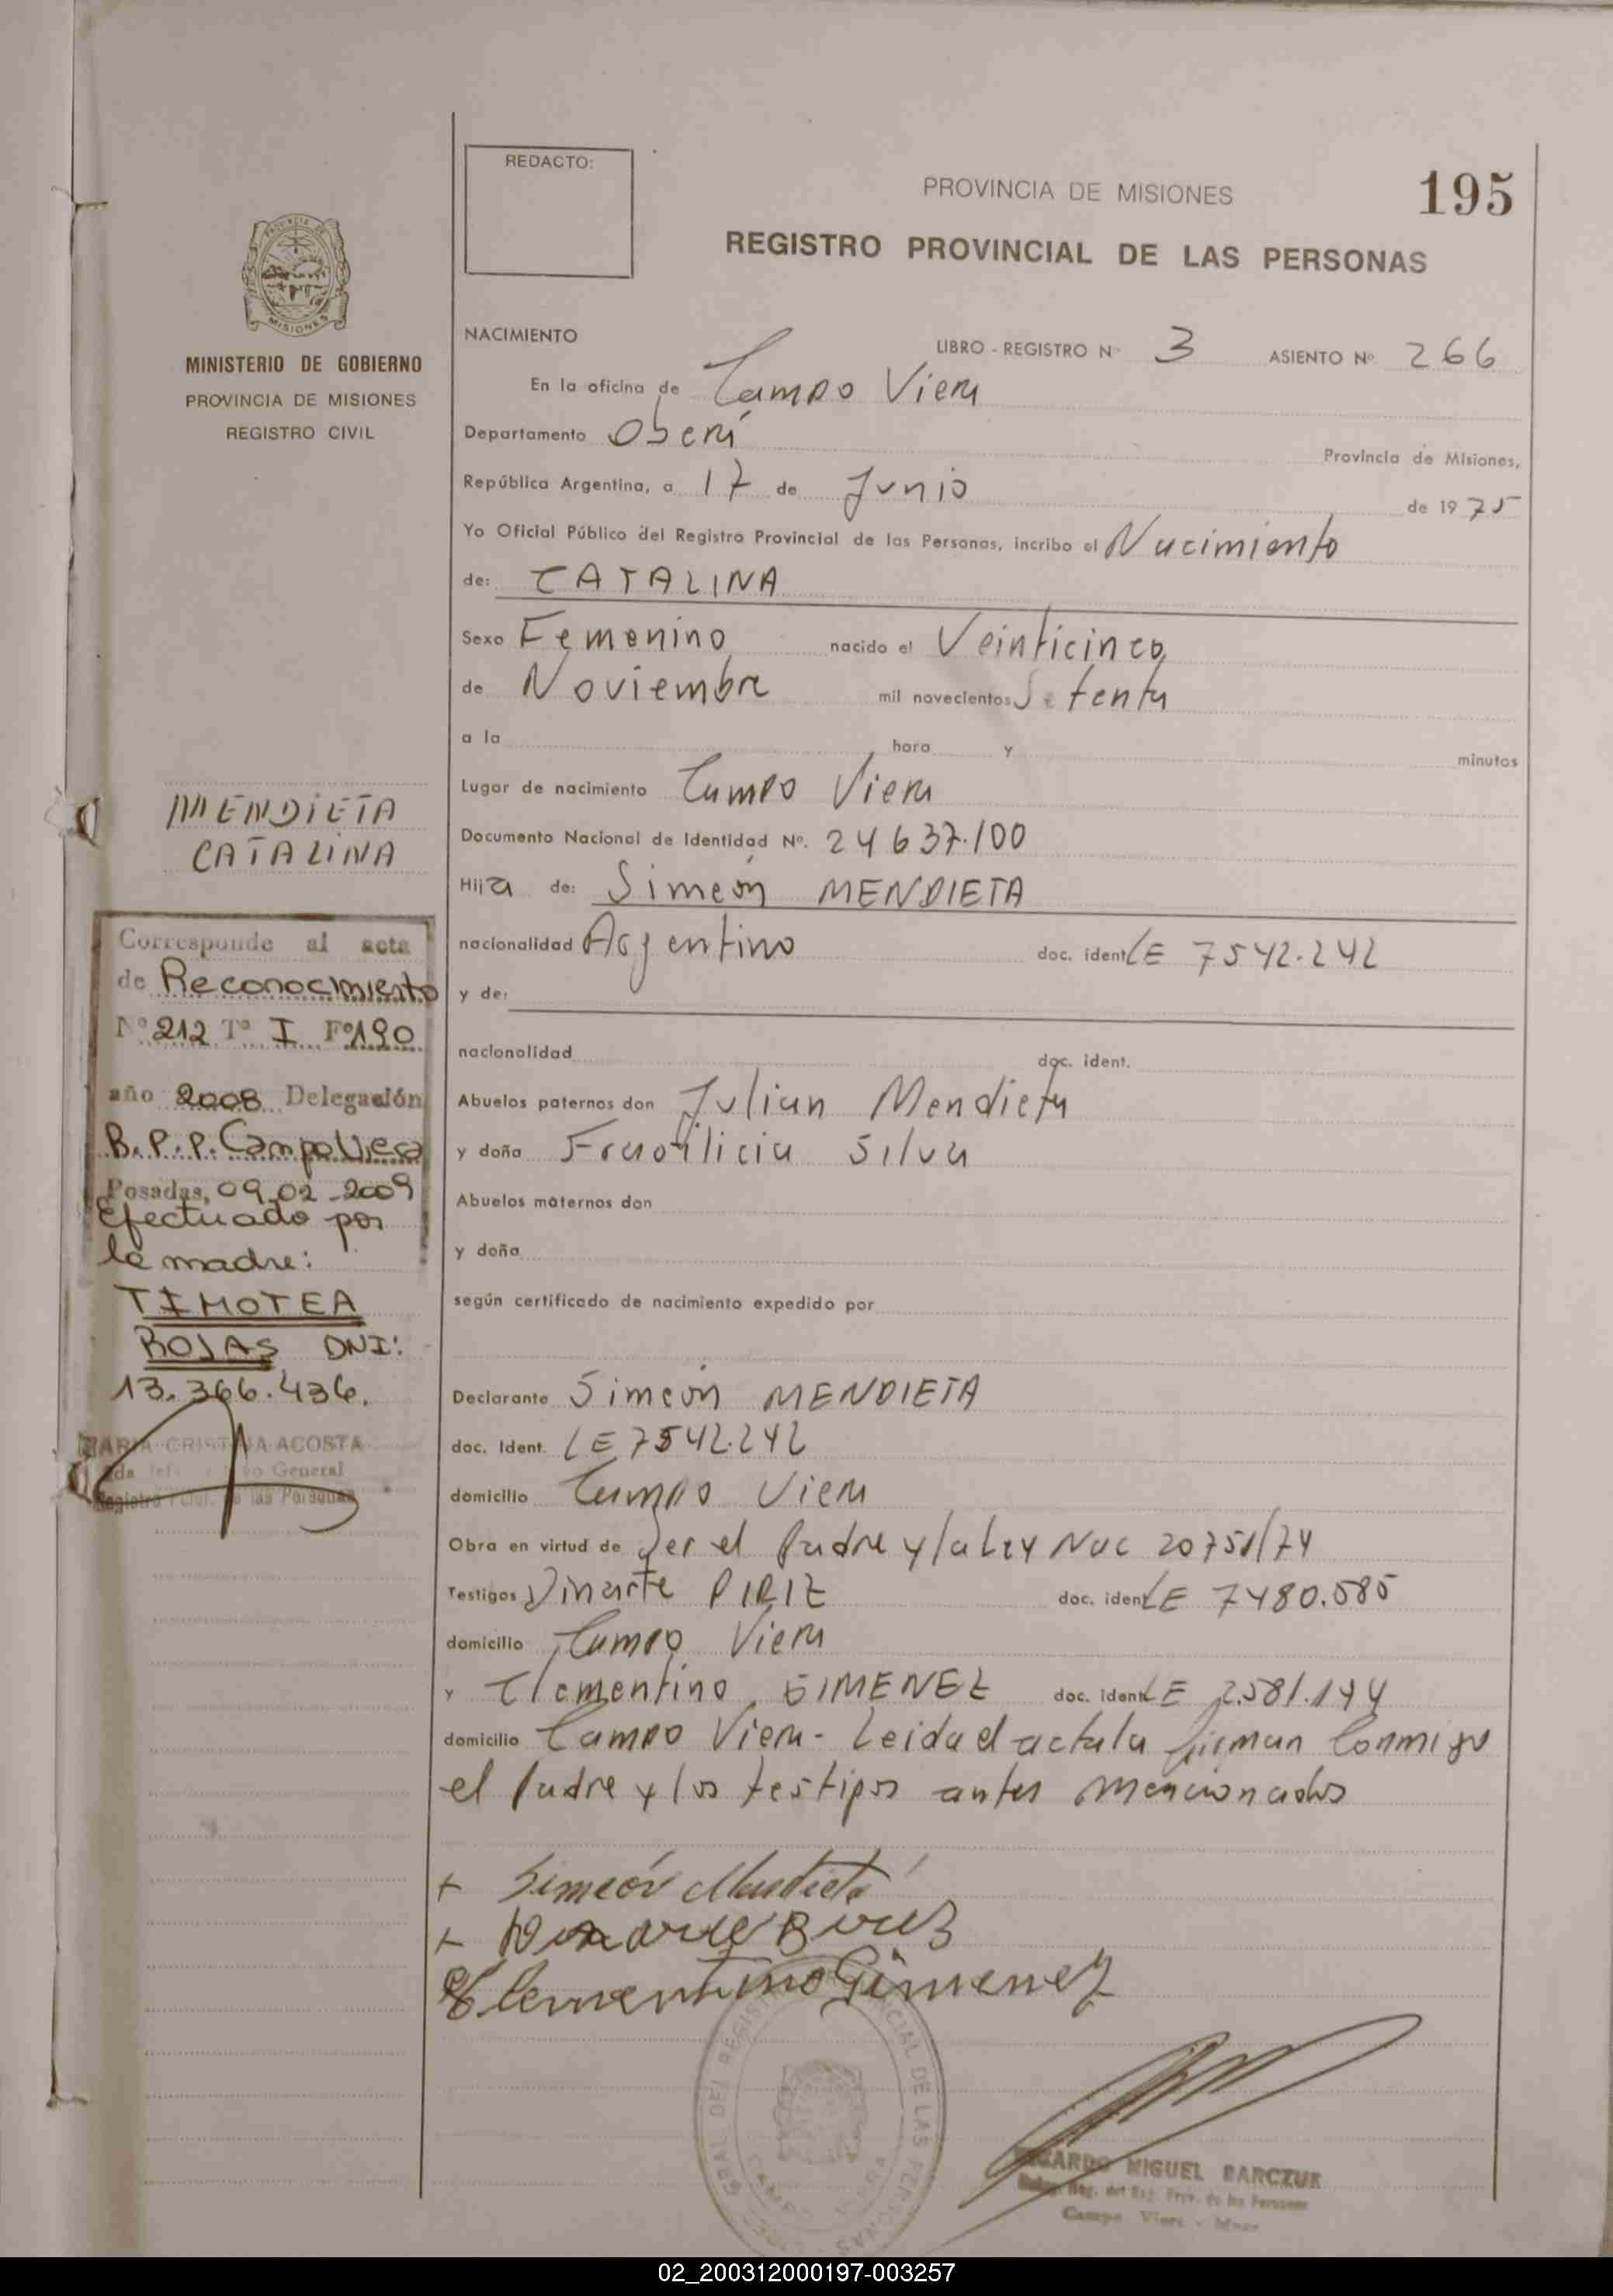 REDACTO:
PROVINCIA DE MISIONES
195
REGISTRO PROVINCIAL DE LAS PERSONAS
PROVINCIA DE
MISIONES
MINISTERIO DE GOBIERNO
PROVINCIA DE MISIONES
REGISTRO CIVIL
NACIMIENTO
LIBRO - REGISTRO Nº 3 ASIENTO Nº 266
En la oficina de Campo Viera
Departamento Oberá
Provincia de Misiones,
República Argentina, a 17 de Junio de 1975
Yo Oficial Público del Registro Provincial de las Personas, incribo el Nacimiento
de: CATALINA
Sexo Femenino nacido el Veinticinco
de Noviembre mil novecientos Setenta
a la hora y minutos
Lugar de nacimiento Campo Viera
Documento Nacional de Identidad Nº. 24637.100
Hija de: Simeón MENDIETA
nacionalidad Argentino doc. ident. LE 7542.242
y de:
nacionalidad doc. ident.
Abuelos paternos don Julian Mendieta
y doña Silva
Abuelos maternos don
y doña
según certificado de nacimiento expedido por
Declarante Simeón MENDIETA
doc. Ident. LE 7542.242
domicilio Campo Viera
Obra en virtud de Ser el Padre y/a Ley Nac 20751/74
Testigos Dinarte PIRIZ doc. ident. LE 7480.585
domicilio Campo Viera
y Clementino GIMENEZ doc. ident. LE 2.581.144
domicilio Campo Viera - Leida el acta la firman Conmigo
el Padre y los testigos antes mencionados
+ Simeón Mendieta
+
Clementino Gimenez
RICARDO MIGUEL BARCZUK
Campo Viera - Mnes
MENDIETA
CATALINA
Corresponde al acta
de Reconocimiento
Nº 212 Tº I Fº 190
año 2008 Delegación
B.P.P. Campo Viera
Posadas, 09.02.2009
Efectuado por
la madre:
TIMOTEA
ROJAS DNI:
13.366.436.
MARIA CRISTINA ACOSTA
General
Registro Pcial. de las Personas
02_200312000197-003257